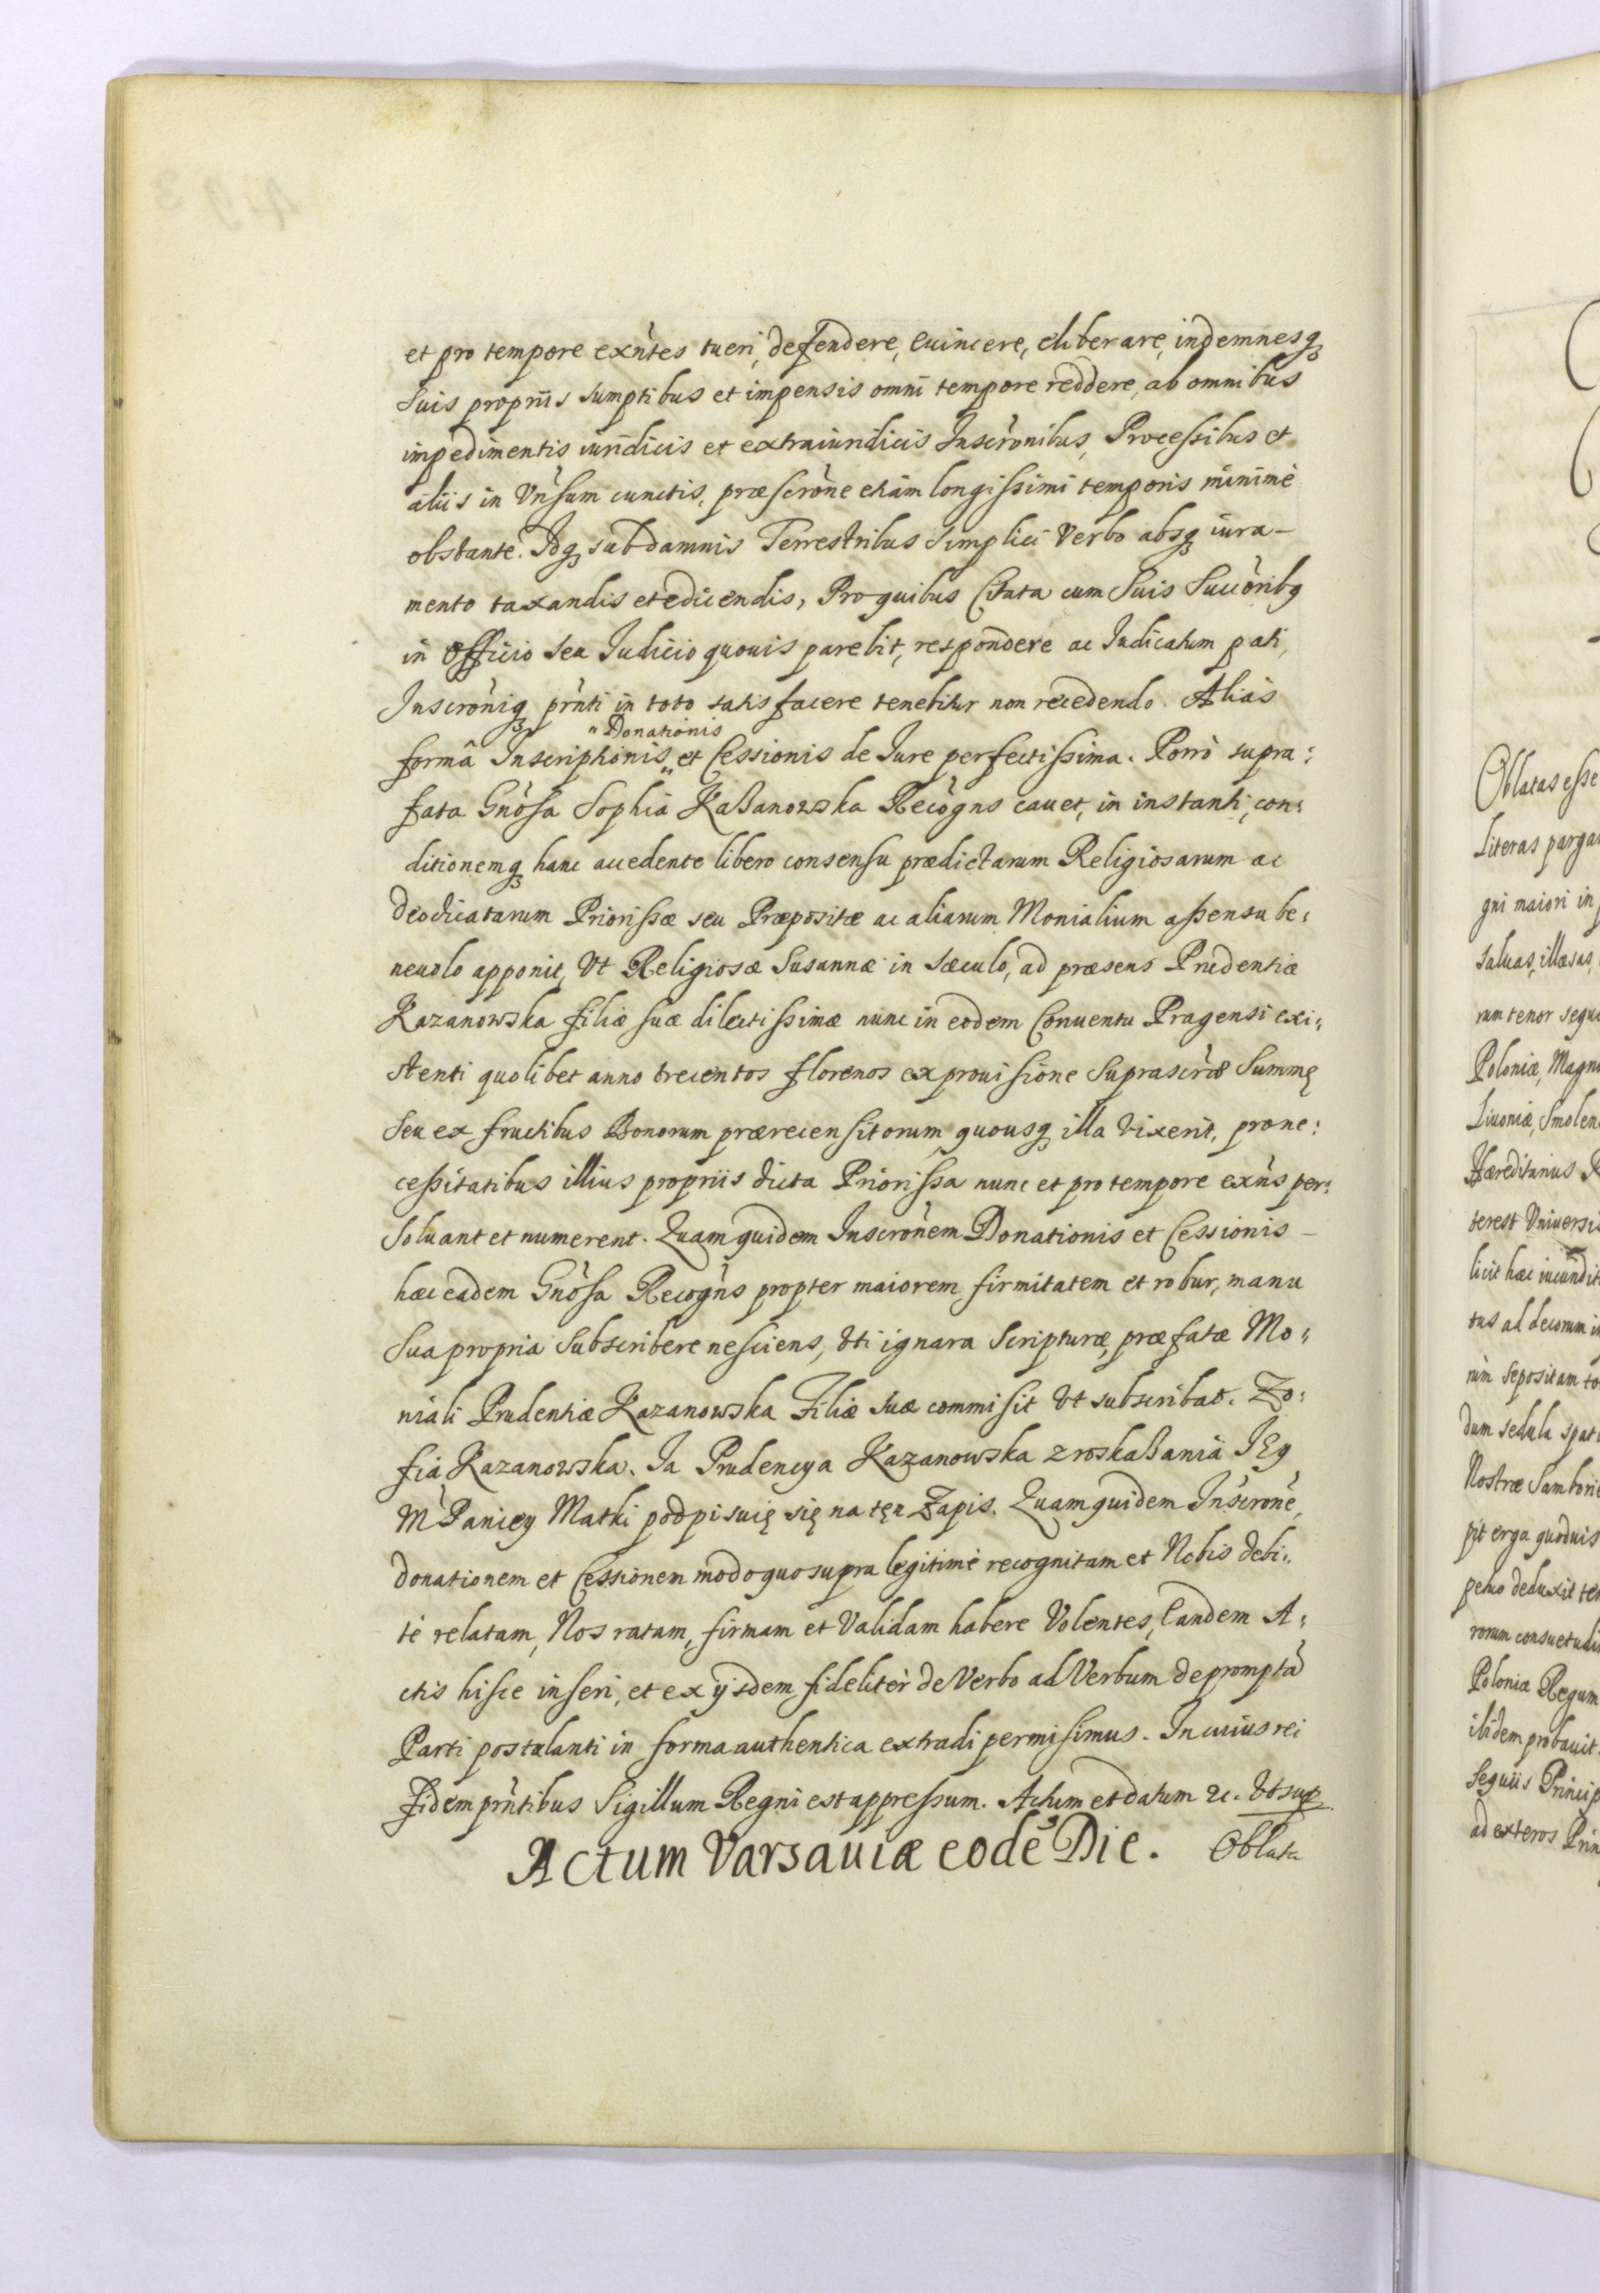 et pro tempore exn̄tes tueri, defendere, euincere, eliberare, indemnesq́₃
suis proprijs sumptibus et impensis omni tempore reddere, ab omnibus
impedimentis iuridicis et extraiuridicis Inscrōnibus, Processibus et
alijs in Vn̄sum cunctis, præscrōne etiam longissimi temporis minimè
obstante. Idq́₃ sub damnis Terrestribus simplici Verbo absq́₃ iura-
mento taxandis et edicendis, Pro quibus Citata cum Suis Succōribq
in officio seu Iudicio quouis parebit, respondere ac Iudicatum pati,
Inscrōniq́₃ pr̄nti in toto satisfacere tenebitur non recedendo. Alias
"Donationis
formâ Inscriptionis „ et Cessionis de Iure perfectissima. Porrò supra:
fata Gn̄osa Sophia Kaßanowska Recōgns cauet, in instanti, con:
ditionemq́₃ hanc accedente libero consensu prædictarum Religiosarum ac
deodicatarum Priorissæ seu Præpositæ ac aliarum Monialium assensu be:
neuolo apponit, Vt Religiosæ Susannæ in sæculo, ad præsens Prudentiæ
Kazanowska filiæ suæ dilectissimæ nunc in eodem Conuentu Pragensi exi:
stenti quolibet anno trecentos florenos ex prouisione suprascr̄æ Summę
seu ex fructibus Bonorum prærecensitorum, quousq́₃ illa Vixerit, pro ne:
cessitatibus illius proprijs dicta Priorissa nunc et pro tempore exn̄s per:
soluant et numerent. Quam quidem Inscrōnem Donationis et Cessionis –
hæc eadem Gn̄osa Recogn̄s propter maiorem firmitatem et robur, manu
sua propria subscribere nesciens, Vti ignara Scripturæ, præfatæ Mo:
niali Prudentiæ Kazanowska Filiæ suæ commisit Vt subscribat. Zo:
fia Kazanowska. Ia Prudencya Kazanowska z roskaßania IEy
M Paniey Matki podpisuię się na tęn Zapis. Quam quidem Inscrōne,
donationem et Cessionem modo quo supra legitimè recognitam et Nobis debi:
tè relatam, Nos ratam, firmam et Validam habere Volentes, Eandem A:
ctis hisce inseri, et ex ijsdem fideliter de Verbo ad Verbum depromptã
Parti postulanti in forma authentica extradi permisimus. In cuius rei
fidem pr̄ntibus Sigillum Regni est appressum. Actum et datum &c. Vt sup
Actum Varsauiæ eodē Die. Oblata
Oblatas esse
literas parga
gni maiori in
saluas, illæsas,
rum tenor sequ
Poloniæ, Magn
Liuoniæ, Smolen
Hæreditarius R
terest Vniuersi
licit hæc iucundit
tus ad decorum i
rim sepositam to
dum sedula spat
Nostræ Samborie
pit erga quoduis
petuo deduxit te
rorum consuetudi
Poloniæ Regum
ibidem probauit
sequijs Princip
ad exteros Prin